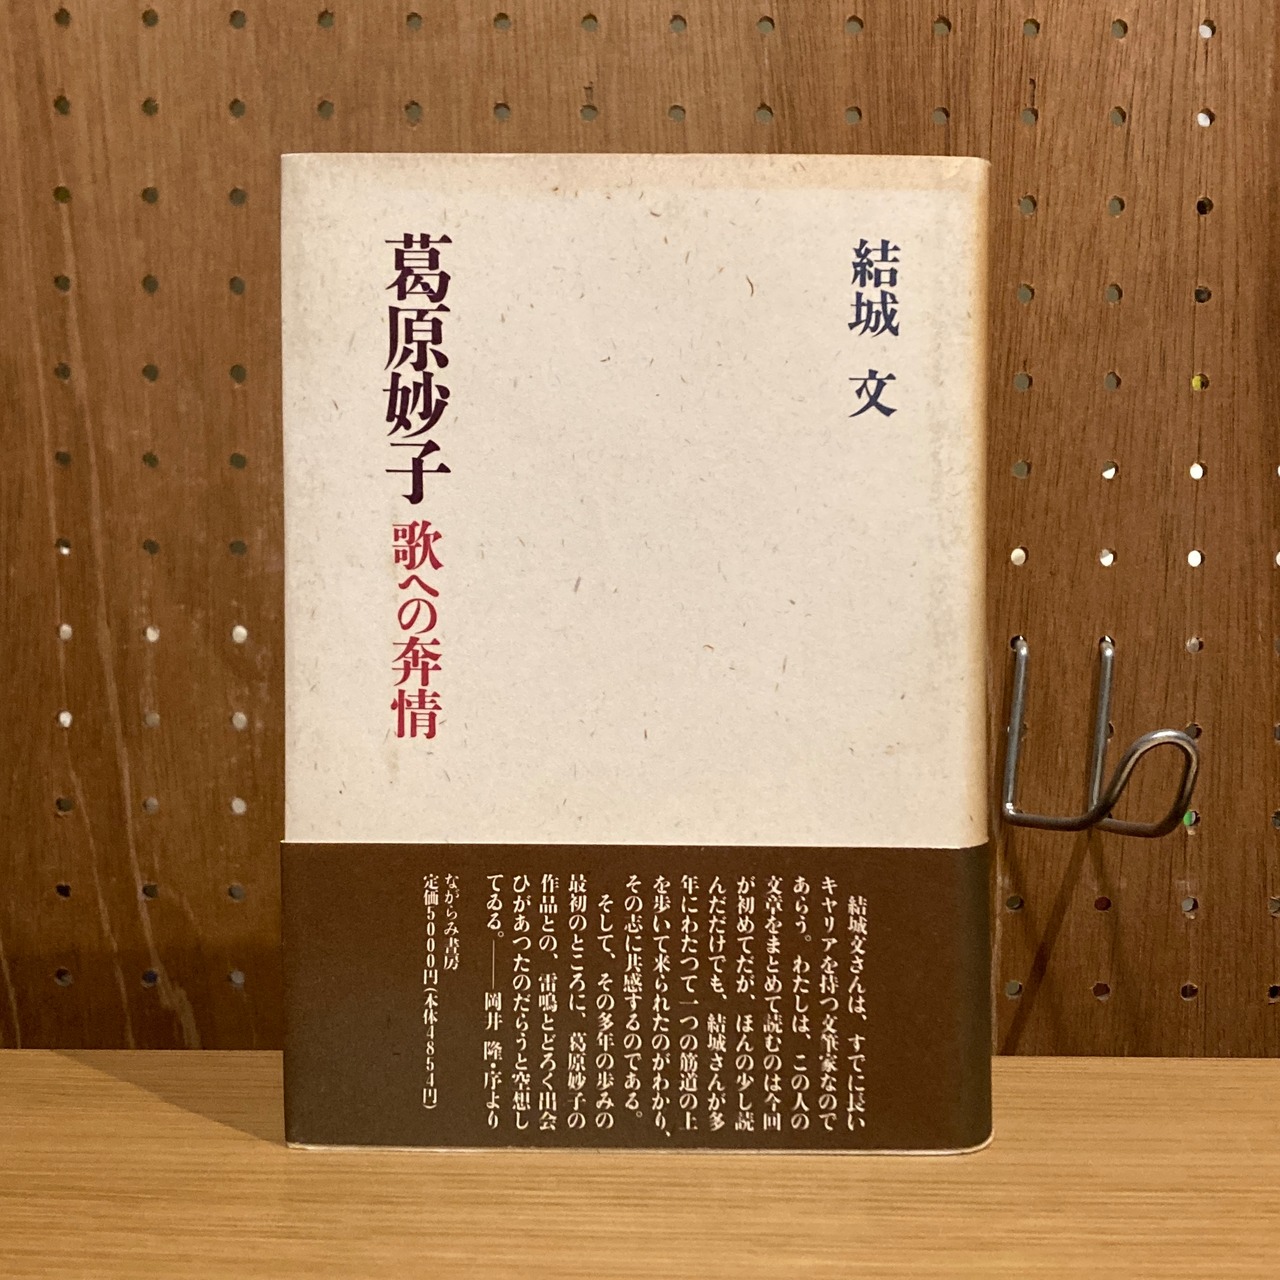 結城 文
葛原妙子 歌への奔情
結城文さんは、すでに長い
キャリアを持つ文筆家なので
あらう。わたしは、この人の
文章をまとめて読むのは今回
が初めてだが、ほんの少し読
んだだけでも、結城さんが多
年にわたつて一つの筋道の上
を歩いて来られたのがわかり、
その志に共感するのである。
そして、その多年の歩みの
最初のところに、葛原妙子の
作品との、雷鳴とどろく出会
ひがあつたのだらうと空想し
てゐる。——岡井 隆・序より
ながらみ書房
定価5000円(本体4854円)